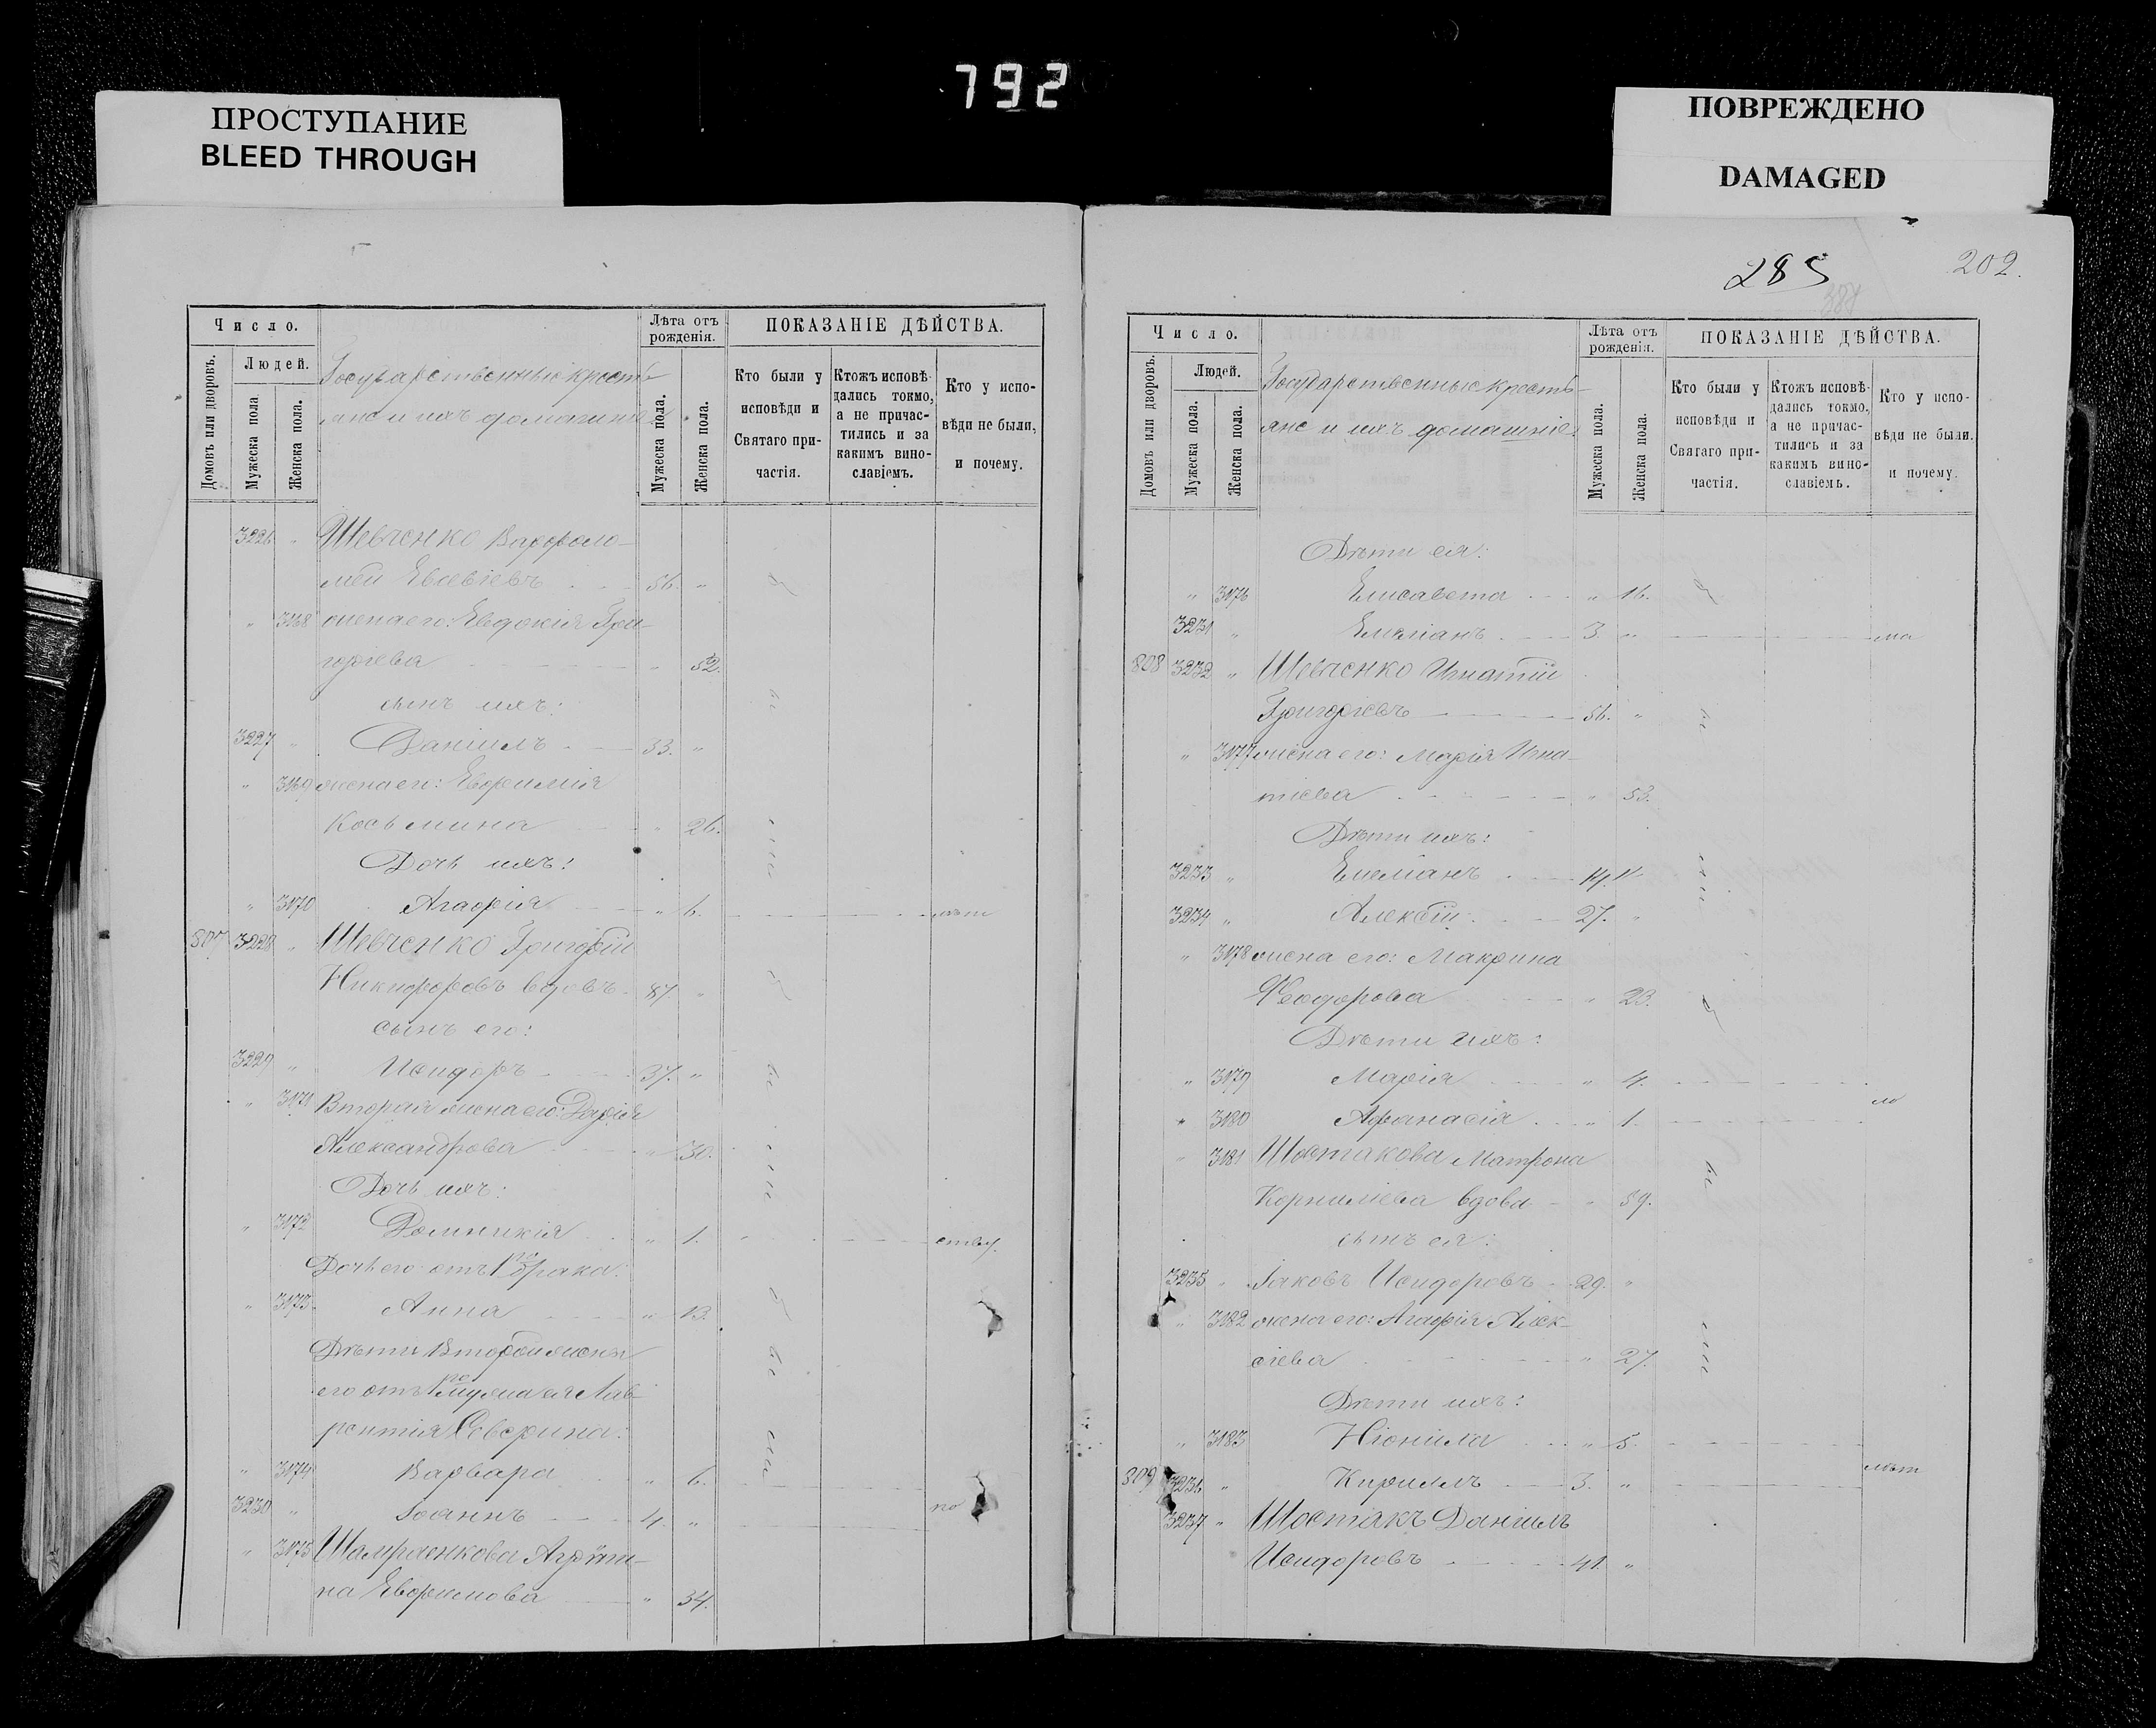 792
ПРОСТУПАНИЕ
BLEED THROUGH
ПОВРЕЖДЕНО
DAMAGED
Число.
Лѣта отъ рожденія.
ПОКАЗАНІЕ ДѢЙСТВА.
Домовъ или дворовъ.
Людей.
Мужеска пола
Женска пола.
Государственные кресть-
яне и ихъ домашніе
Мужеска пола.
Женска пола.
Кто были у исповѣди и Святаго при-частія.
Ктожъ исповѣ-дались токмо, а не причас-тились и за какимъ вино-славіемъ.
Кто у испо-вѣди не были, и почему.
3226 " Шевченко Варфоло-
мей Евсевіевъ 56. "
" 3168 жена его: Евдокія Гри-
горіева " 52.
сынъ ихъ:
3227 " Даніилъ 33. "
" 3169 жена его: Евфимія
Косьмина " 26.
Дочь ихъ:
" 3170 Агафія " 6.
807 3228 " Шевченко Григорій
Никифоровъ вдовъ 87. "
сынъ его:
3229 " Исидоръ 37. "
" 3171 Вторая жена его: Дарія
Александрова " 30.
Дочь ихъ:
" 3172 Домникія " 1.
Дочь его отъ 1го брака:
" 3173 Анна " 13.
Дѣти второй жены
его отъ 1го мужа ея Лав-
рентія Северина:
" 3174 Варвара " 6.
3230 " Іоаннъ 4. "
" 3175 Агрипи-
на Евфимова " 34.
285
202.
Число.
Лѣта отъ рожденія.
ПОКАЗАНІЕ ДѢЙСТВА.
Домовъ или дворовъ.
Людей.
Мужеска пола.
Женска пола.
Государственные кресть-
яне и ихъ домашніе.
Мужеска пола.
Женска пола.
Кто были у исповѣди и Святаго при-частія.
Ктожъ исповѣ-дались токмо, а не причас-тились и за какимъ вино-славіемъ.
Кто у испо-вѣди не были, и почему.
Дѣти ея:
" 3176 Елисавета " 16.
3231 " Емеліанъ 3 "
808 3232 " Шевченко Игнатій
Григоріевъ 56. "
" 3177 жена его: Марія Игна-
тіева " 53.
Дѣти ихъ:
3233 " Емеліанъ 14.
3234 " Алексій 27. "
" 3178 жена его: Макрина
Ѳеодорова " 23.
Дѣти ихъ:
" 3179 Марія " 4.
" 3180 Афанасія " 1.
" 3181 Шостакова Матрона
Корниліева вдова " 59.
сынъ ея:
3235 " Іаковъ Исидоровъ 29. "
" 3182 жена его: Агафія Алек-
сіева " 27.
Дѣти ихъ:
" 3183 Ніонила " 5.
809 3236 " Кириллъ 3. "
3237 " Шостакъ Даніилъ
Исидоровъ 41. "